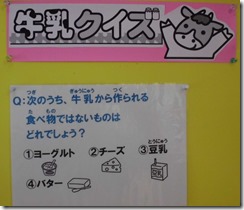 牛乳クイズ
Q:次のうち、牛乳から作られる
食べ物ではないものは
どれでしょう？
①ヨーグルト ②チーズ ③豆乳
④バター